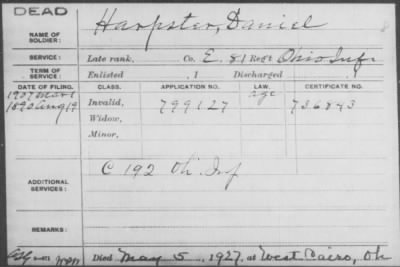 DEAD
NAME OF SOLDIER: Harpster, Daniel
SERVICE: Late rank, Co. E. 81 Reg't Ohio Inf.
TERM OF SERVICE: Enlisted , 1 Discharged , 1
DATE OF FILING. CLASS. APPLICATION NO. LAW. CERTIFICATE NO.
1907 Mar 1 age
1890 Aug 19 Invalid, 799127 736843
Widow,
Minor,
ADDITIONAL SERVICES: C 192 Oh. Inf
REMARKS:
Died May 5, 1927, at West Cairo, Oh